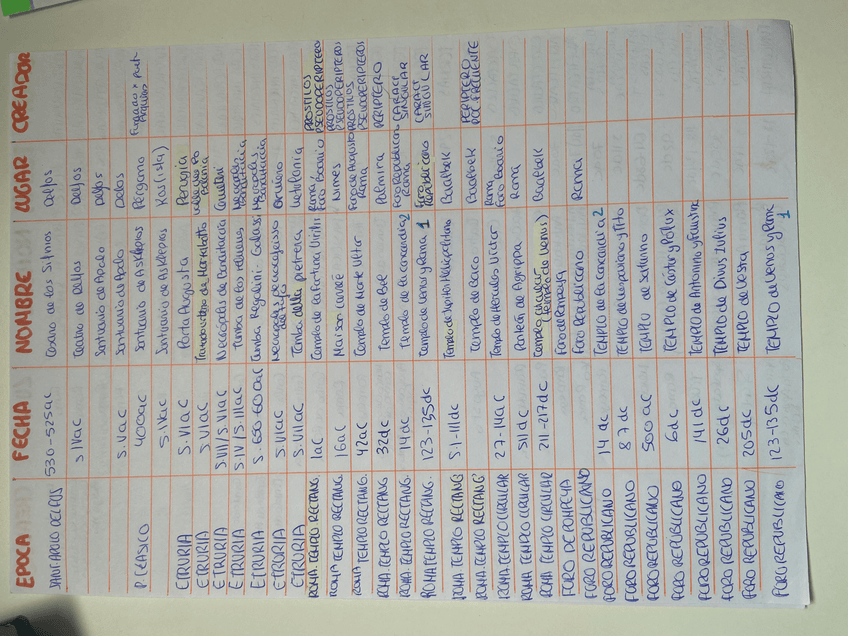 EPOCA FECHA NOMBRE LUGAR CREADOR
SANT. APOLO DELFOS 530-525aC Tesoro de los Sifnios Delfos
s. IVaC Teatro de Delfos Delfos
Santuario de Apolo Delfos
s. VaC Santuario de Apolo Delos
P. CLASICO 400aC Santuario de Asklepios Pérgamo
s. IVaC Santuario de Asklepios Kos (isla)
ETRURIA s. VIaC Porta Augusta Perugia
ETRURIA s. VIaC
ETRURIA s. VII/s. IIIaC Necrópolis de Banditaccia Cerveteri
ETRURIA s. IV/s. IIIaC Tumba de los relieves Necrópolis Banditaccia
ETRURIA s. 650-600aC Tumba Regolini-Galassi Necrópolis Banditaccia
ETRURIA s. VIIaC Necrópolis de crocefisso del tufo Orvieto
ETRURIA s. VIIaC Tumba della pietrera Vetulonia
ROMA TEMPLO RECTANG. 1aC Templo de la Fortuna Virilis Roma Foro Boario PROSTILOS PSEUDOPERIPTERO
ROMA TEMPLO RECTANG. 16aC Maison Carreé Nimes PROSTILOS PSEUDOPERIPTEROS
ROMA TEMPLO RECTANG. 42aC Templo de Marte Ultor Foro de Augusto Roma PROSTILOS PSEUDOPERIPTEROS
ROMA TEMPLO RECTANG 32dc Templo de Bel Palmira PERIPTERO
ROMA TEMPLO RECTANG. 14aC Templo de la concordia 2 Foro Republicano Roma CARACT SINGULAR
ROMA TEMPLO RECTANG. 123-135dC Templo de Venus y Roma 1 Foro Republicano CARACT SINGULAR
ROMA TEMPLO RECTANG S.I-IIIdC Baalbek
ROMA TEMPLO RECTANG Templo de Baco Baalbek PERIPTERO
ROMA TEMPLO CIRCULAR 27-14aC Templo de Hercules Victor Roma Foro Boario
ROMA TEMPLO CIRCULAR Panteón de Agrippa Roma
ROMA TEMPLO CIRCULAR 211-217dC Templo circular (templo de Venus) Baalbek
FORO DE POMPEYA Foro de Pompeya
FORO REPUBLICANO Foro Republicano Roma
FORO REPUBLICANO 14 dC TEMPLO de la concordia 2
FORO REPUBLICANO 87 dC TEMPLO de Vespasiano y Tito
FORO REPUBLICANO 500 aC TEMPLO de Saturno
FORO REPUBLICANO 6dC TEMPLO de Cástor y Pólux
FORO REPUBLICANO 141 dC TEMPLO de Antonino y Faustina
FORO REPUBLICANO 26dC TEMPLO de Divus Julius
FORO REPUBLICANO 205dC TEMPLO de Vesta
FORO REPUBLICANO 123-135dC TEMPLO de Venus y Roma 1